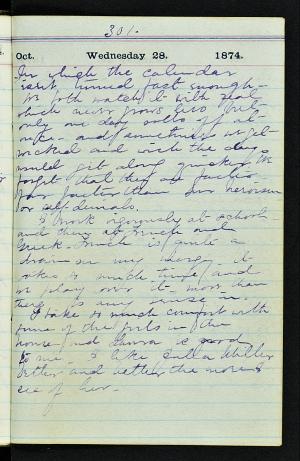 301.
Oct. Wednesday 28. 1874.
In which the calendar
isn't turned fast enough.
We both watch it with zeal
which never grows less but
only one day at
once and sometimes we get
wicked and wish the days
would get along quicker. We
forget that they go
faster than our
or self denials.
I work vigorously at school
and then at French and
Greek. French is quite a
drain on my it
takes so much time and
we over it more than
there is any sense in.
I take so much comfort with
some of the girls in the
house and is good
to me. I like Miller
better and better the more I
see of her.